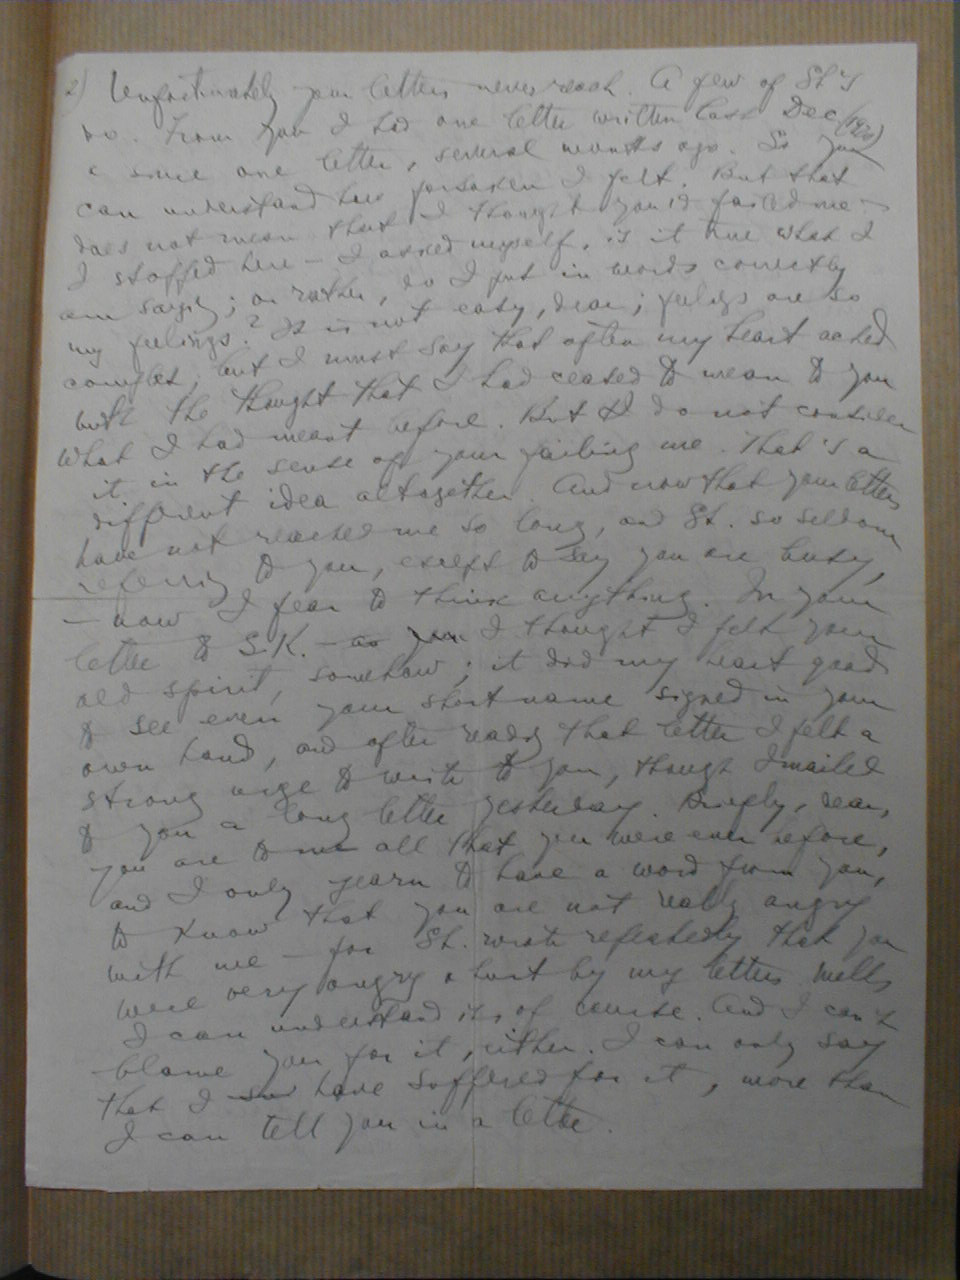 2) Unfortunately your letters never reach. A few of St's
do. From you I had one letter written last Dec (1920)
& since one letter, several months ago. So you
can understand how forsaken I felt. But that
does not mean that I thought you'd failed me —
I stopped here — I asked myself, is it true what I
am saying; or rather, do I put in words correctly
my feelings? It is not easy, dear; feelings are so
complex, but I must say that often my heart ached
with the thought that I had ceased to mean to you
what I had meant before. But I do not consider
it in the sense of your failing me. That's a
different idea altogether. And now that your letters
have not reached me so long, and St. so seldom
referring to you, except to say you are busy,
— now I fear to think anything. In your
letter to S.K. — as you I thought I felt your
old spirit, somehow; it did my heart good
to see even your short name signed in your
own hand, and after reading that letter I felt a
strong urge to write to you, though I mailed
to you a long letter yesterday. Briefly, dear,
you are to me all that you were ever before,
and I only yearn to have a word from you,
to know that you are not really angry
with me — for St. wrote repeatedly that you
were very angry & hurt by my letters.
I can understand it, of course. And I can't
blame you for it, either. I can only say
that I have suffered for it, more than
I can tell you in a letter.